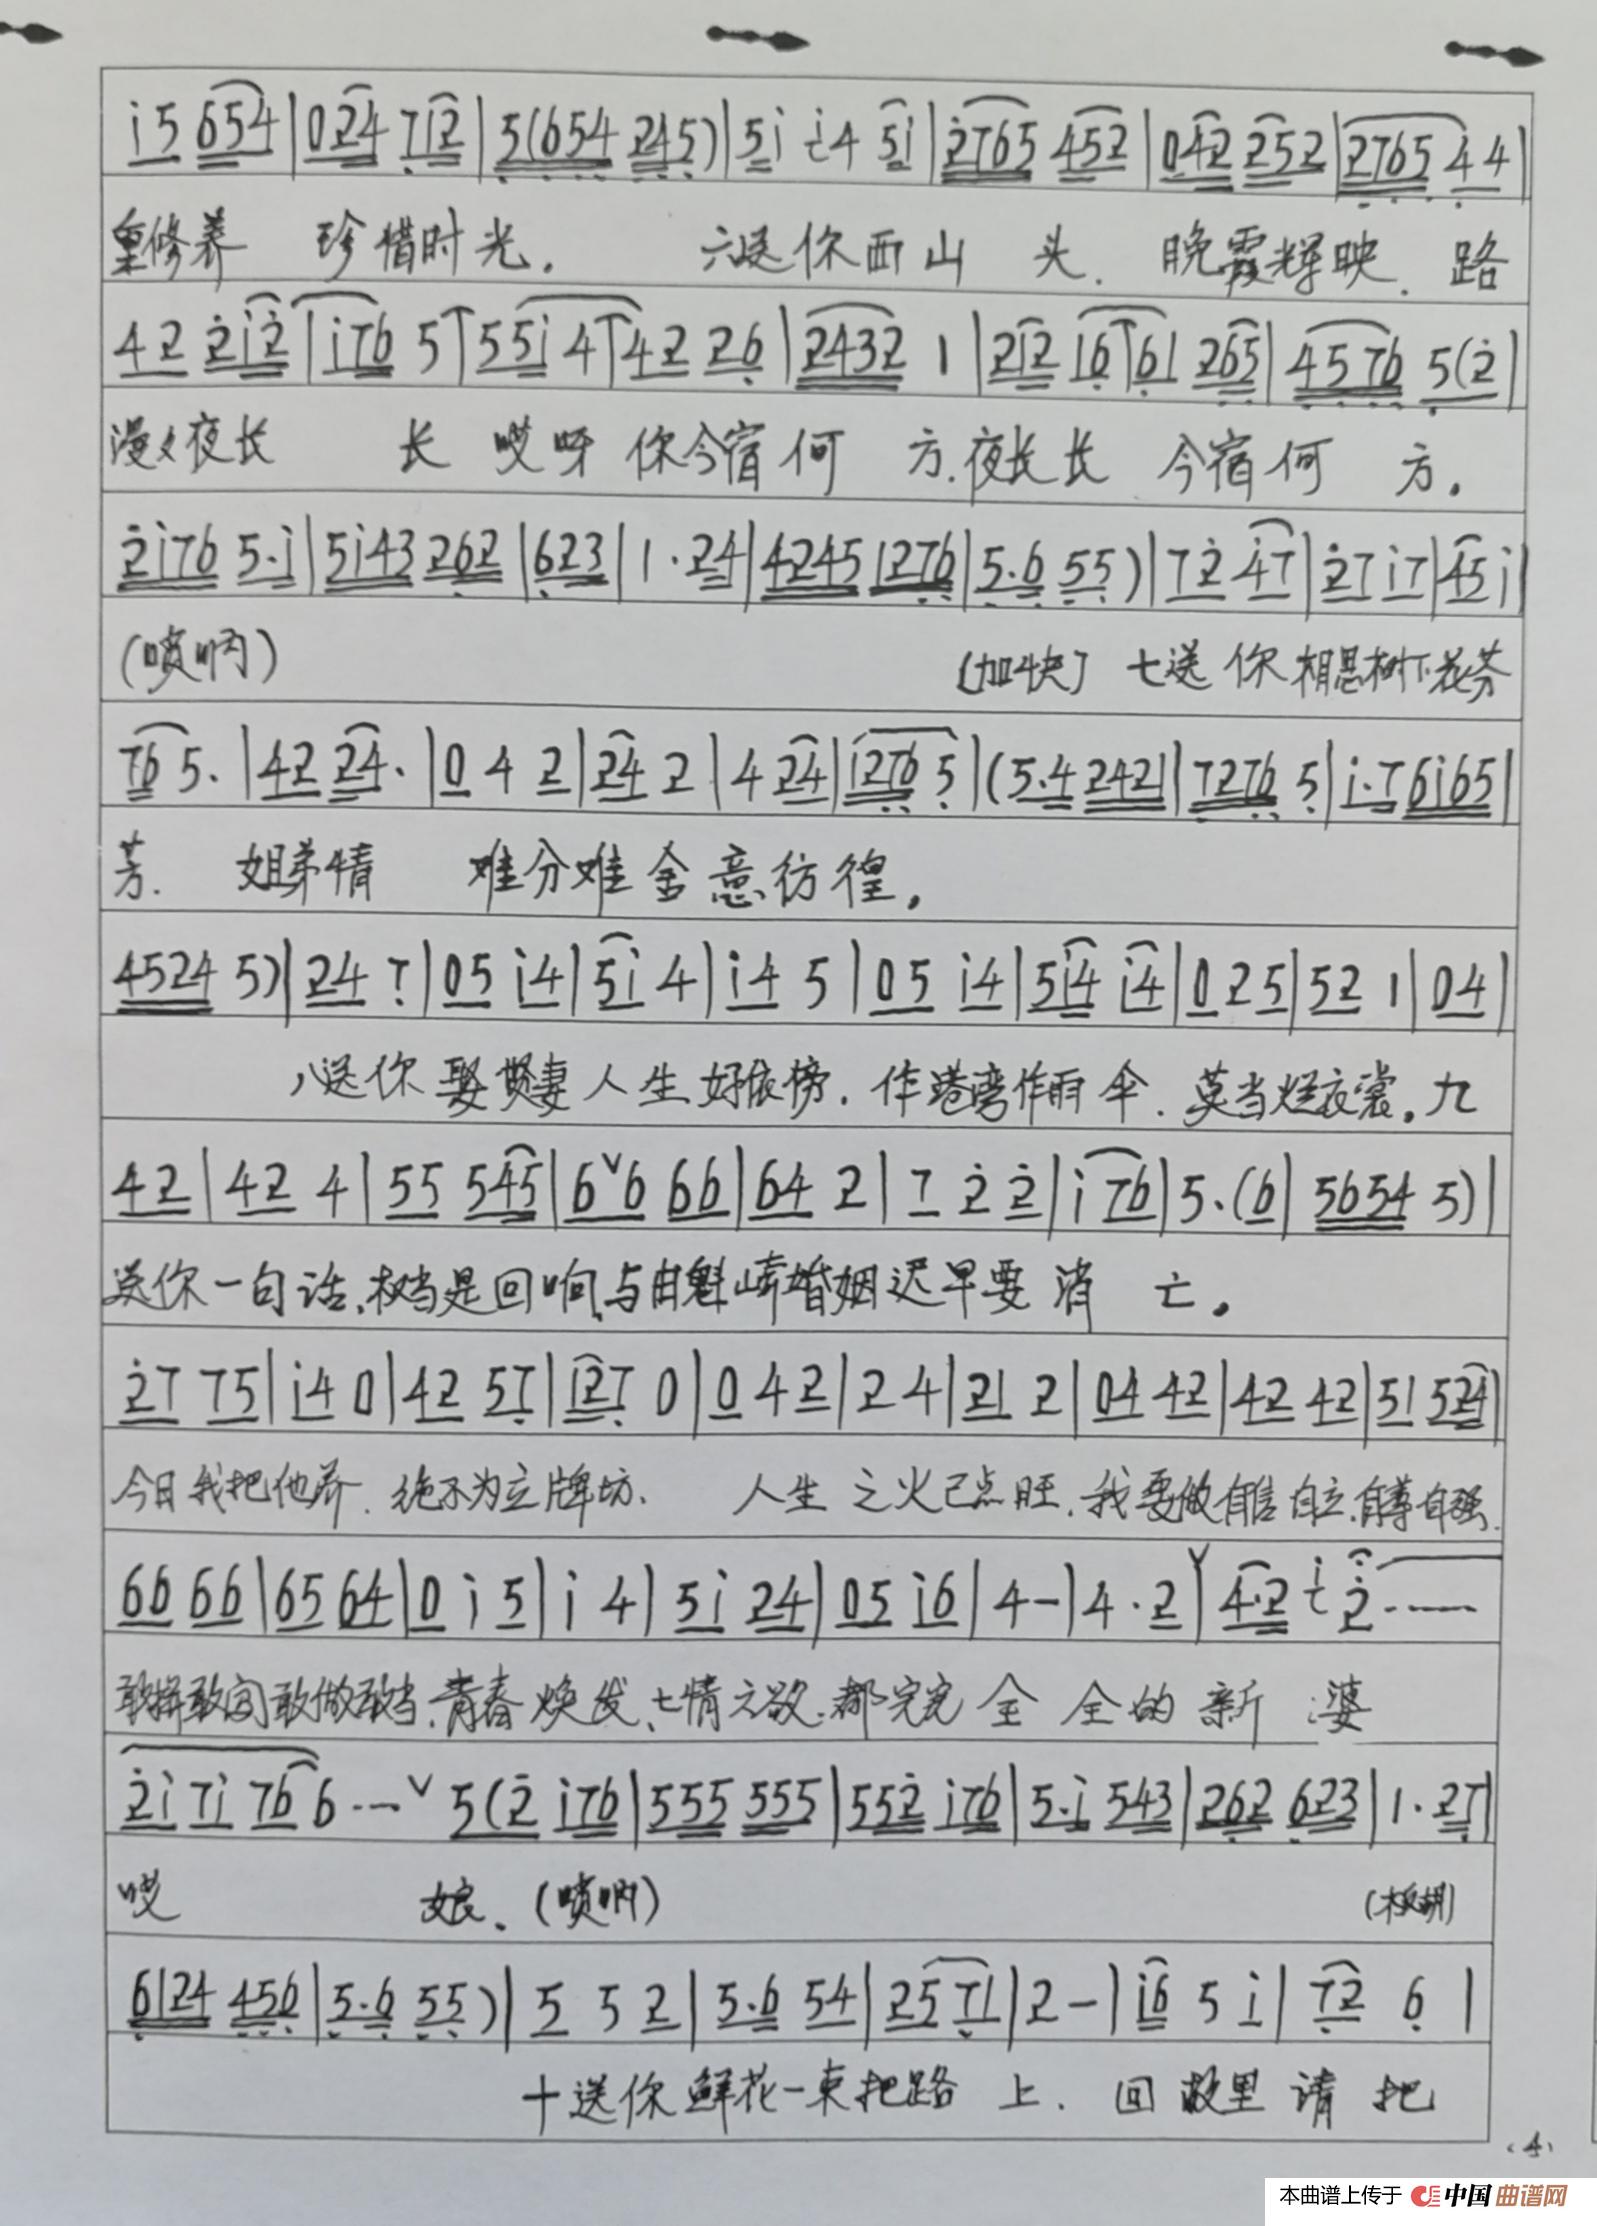 i 5 654 | 0 24 7 i2 | 5(654 245) | 5i i 4 5i | 2765 452 | 042 252 | 2765 4 4 |
重修养 珍惜时光. 六送你西山 头. 晚霞辉映. 路
42 2i2 | i76 5 | 55i 4 | 42 26 | 2432 1 | 212 16 | 61 265 | 4576 5(2 |
漫々夜长 长 哎呀 你今宿何 方.夜长长 今宿何 方.
2i76 5·i | 5i43 262 | 623 | 1·24 | 4245 1276 | 5·6 55) | 72 47 | 27 i7 | 45 i |
(唢呐) [加快] 七送你相思树下花芬
76 5· | 42 24· | 0 4 2 | 24 2 | 4 24 | i276 5 | (5·4 2421 | 7276 5 | i·7 6i65 |
芳. 姐弟情 难分难舍意彷徨.
4524 5) | 24 7 | 05 i4 | 5i 4 | i4 5 | 05 i4 | 5i4 i4 | 0 2 5 | 52 1 | 04 |
八送你娶贤妻人生好依榜. 作港湾作雨伞. 莫当烂衣裳. 九
42 | 42 4 | 55 545 | 6ˇ6 66 | 64 2 | 7 2 2 | i 76 | 5·(6 | 5654 5) |
送你一句话.权当是回响.与曲魁崎婚姻迟早要消 亡.
27 75 | i4 0 | 42 57 | i27 0 | 0 4 2 | 2 4 | 21 2 | 04 42 | 42 42 | 51 524 |
今日我把他弃. 绝不为立牌坊. 人生 之火已点旺.我要做自信自立.自尊自强.
66 66 | 65 64 | 0 i 5 | i 4 | 5i 24 | 05 i6 | 4 - | 4·2 ˇ | 4·2 i 2 ----
敢择敢闯敢做敢当.青春焕发、七情六欲.都完完全 全的 新 婆
2i 7i 76 6 --- ˇ 5(2 i76 | 555 555 | 552 i76 | 5·i 543 | 262 623 | 1·27 |
哎 娘. (唢呐) (板胡)
6124 456 | 5·6 55) | 5 5 2 | 5·6 54 | 25 71 | 2 - | i6 5 i | 72 6 |
十送你鲜花一束把路 上. 回故里 请 把
(4)
本曲谱上传于 中国曲谱网